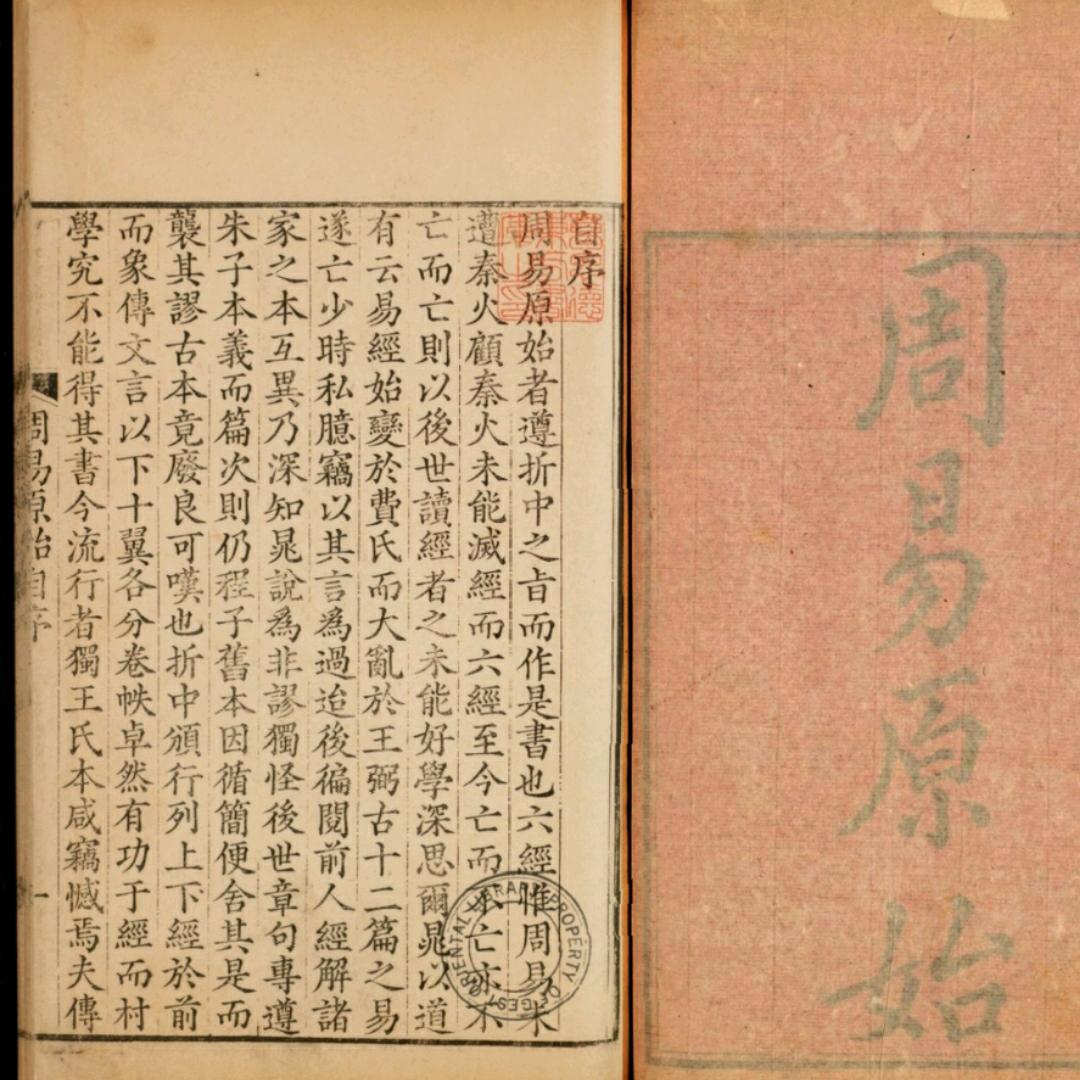 周易原始
自序
周易原始者遵折中之㫖而作是書也六經惟周易未
遭秦火顧秦火未能滅經而六經至今亡而不亡亦不
亡而亡則以後世讀經者之未能好學深思爾晁以道
有云易經始變於費氏而大亂於王弼古十二篇之易
遂亡少時私臆竊以其言為過迨後徧閱前人經解諸
家之本互異乃深知晁說為非謬獨怪後世章句專遵
朱子本義而篇次則仍程子舊本因循簡便舍其是而
襲其謬古本竟廢良可嘆也折中頒行列上下經於前
而象傳文言以下十翼各分卷帙卓然有功于經而村
學究不能得其書今流行者獨王氏本咸竊憾焉夫傳
周易原始自序
一
ORIENTAL LIBRARY PROPERTY OF GEST